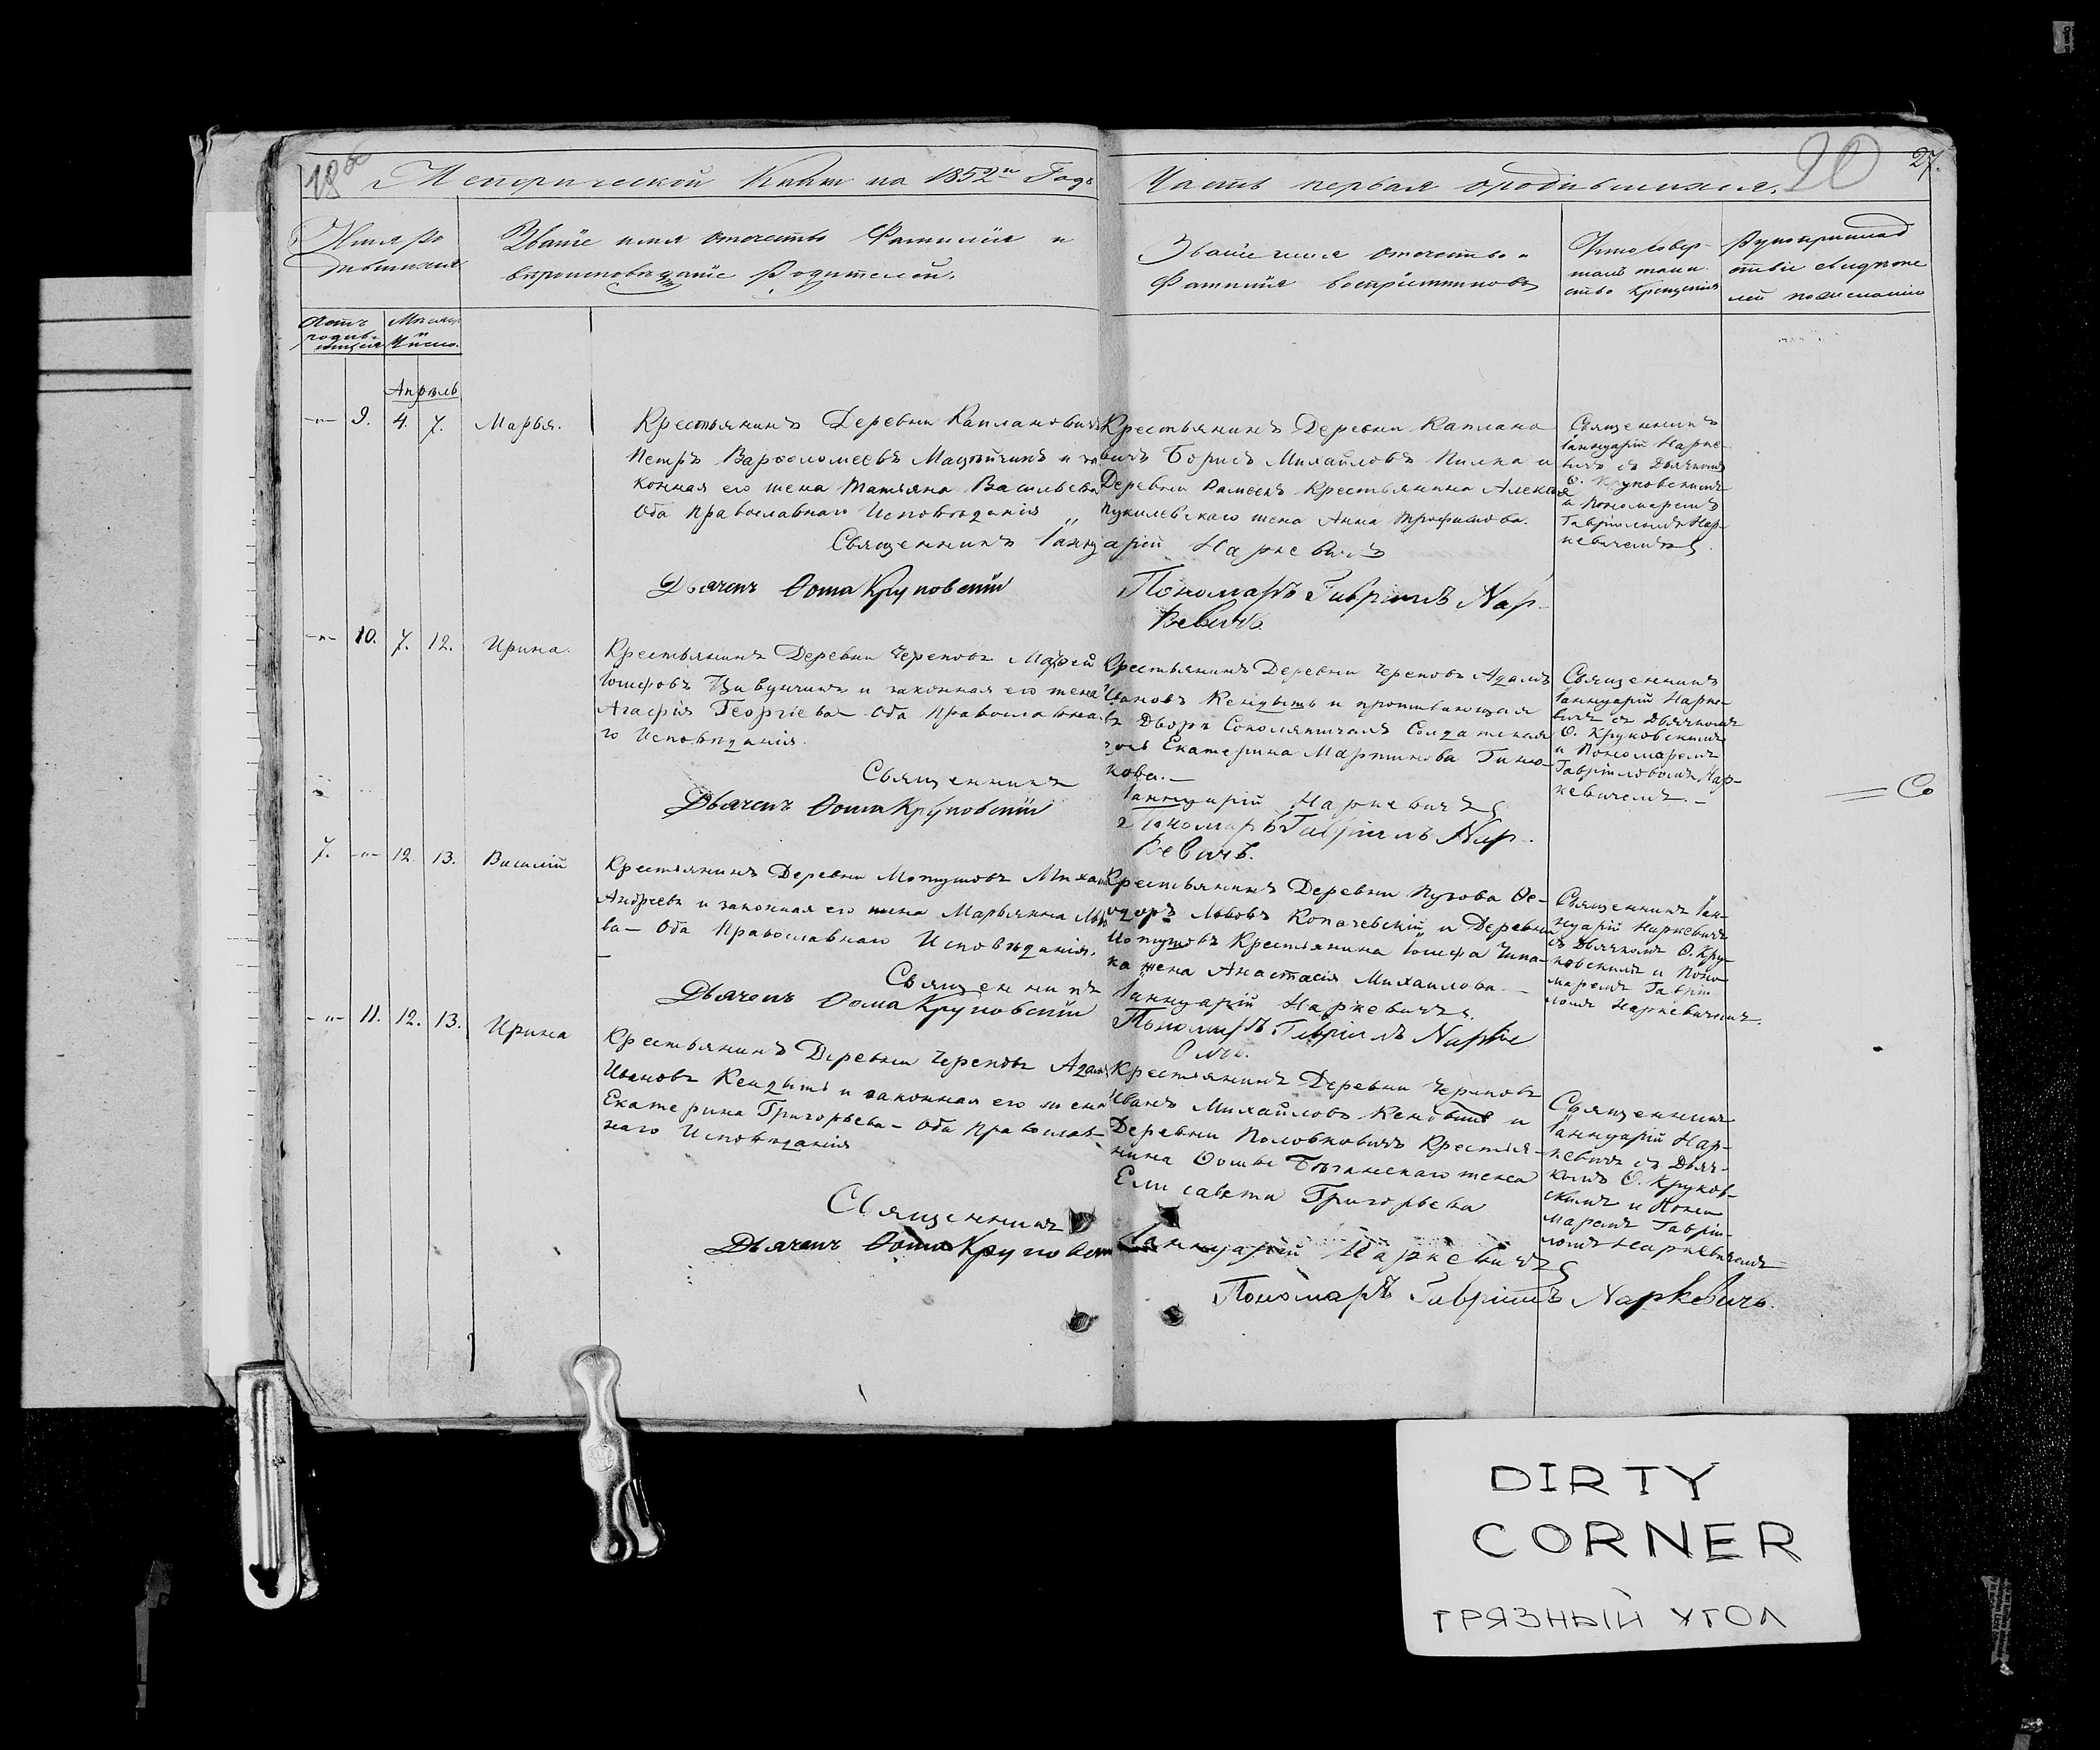 Метрической Книги на 1852й Годъ
Часть первая о родившихся.
20
27.
Имя ро
дившихся
Званіе имя отечество Фамилія и
вѣроисповѣданіе Родителей.
Званіе имя отечество и
Фамилія воспріемниковъ
Кто совер-
шалъ таин
ство Крещенія
Рукоприклад
ство свидѣте
лей по желанію
Мѣсяцъ
и
Число.
Апрѣль
-"- 9. 4. 7. Марья.
Крестьянинъ Деревни Каплановичъ
Петръ Варѳоломеевъ и за
конная его жена Татьяна Васильева
Оба Православнаго Исповѣданія "
Священникъ Іанну
Дьячекъ Ѳома Круковскій
Крестьянинъ Деревни Каплано
вичъ Борисъ Михайловъ Пилка и
Деревни Крестьянина Алексѣя
жена Анна Трофимова.
арій Наркевичъ
Пономарь Гавріилъ Нар-
кевичъ.
Священникъ
Іаннуарій Нарке-
вичъ съ Дьячкомъ
Ѳ. Круковскимъ
и Пономаремъ
Гавріиломъ Нар-
кевичемъ.
-"- 10. 7. 12. Ирина.
Крестьянинъ Деревни Череповъ Матѳей
Іосифовъ и законная его жена
Агафія Георгіева Оба Православна-
го Исповѣданія.
Священникъ
Дьячекъ Ѳома Круковскій
Крестьянинъ Деревни Череповъ Адамъ
Ивановъ Кендышъ и проживающая
въ Дворѣ Солдатская
Екатерина Мартинова
кова.-
Іаннуарій Наркевичъ
Пономарь Гавріилъ Нар-
кевичъ.
Священникъ
Іаннуарій Нарке-
вичъ съ Дьячкомъ
Ѳ. Круковскимъ
и Пономаремъ
Гавріиломъ Нар-
кевичемъ.-
7. -"- 12. 13. Василій
Крестьянинъ Деревни Михаилъ
Андреевъ и законная его жена Марьянна
ва- Оба Православнаго Исповѣданія.
Священникъ
Дьячекъ Ѳома Круковскій
Крестьянинъ Деревни Пузова Ѳе-
одоръ Львовъ Копачевскій и Деревни
Крестьянина Іосифа
ка жена Анастасія Михаилова.-
Іаннуарій Наркевичъ.
Пономарь Гавріилъ Нарке
вичъ.
Священникъ Іан-
нуарій Наркевичъ
съ Дьячкомъ Ѳ. Кру-
ковскимъ и Поно-
маремъ Гаврі-
ломъ Наркевичемъ.
-"- 11. 12. 13. Ирина
Крестьянинъ Деревни Череповъ Адамъ
Ивановъ Кендышъ и законная его жена
Екатерина Григорьева- Оба Православ-
наго Исповѣданія
Священникъ
Дьячекъ Ѳома Круковскій
Крестьянинъ Деревни Череповъ
Иванъ Михайловъ Кендышъ и
Деревни Половковичъ Крестья-
нина Ѳомы жена
Елисавета Григорьева
Іаннуарій Наркевичъ
Пономарь Гавріилъ Наркевичъ.
Священникъ
Іаннуарій Нар-
кевичъ съ Дьяч-
комъ Ѳ. Круков-
скимъ и Поно
маремъ Гаврі-
ломъ Наркевичемъ
DIRTY
CORNER
ГРЯЗНЫЙ УГОЛ